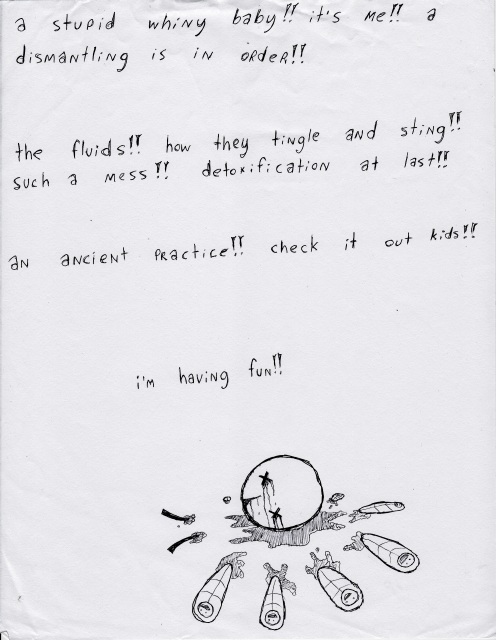 a stupid whiny baby!! it's me!! a
dismantling is in order!!
the fluids!! how they tingle and sting!!
such a mess!! detoxification at last!!
an ancient practice!! check it out kids!!
i'm having fun!!